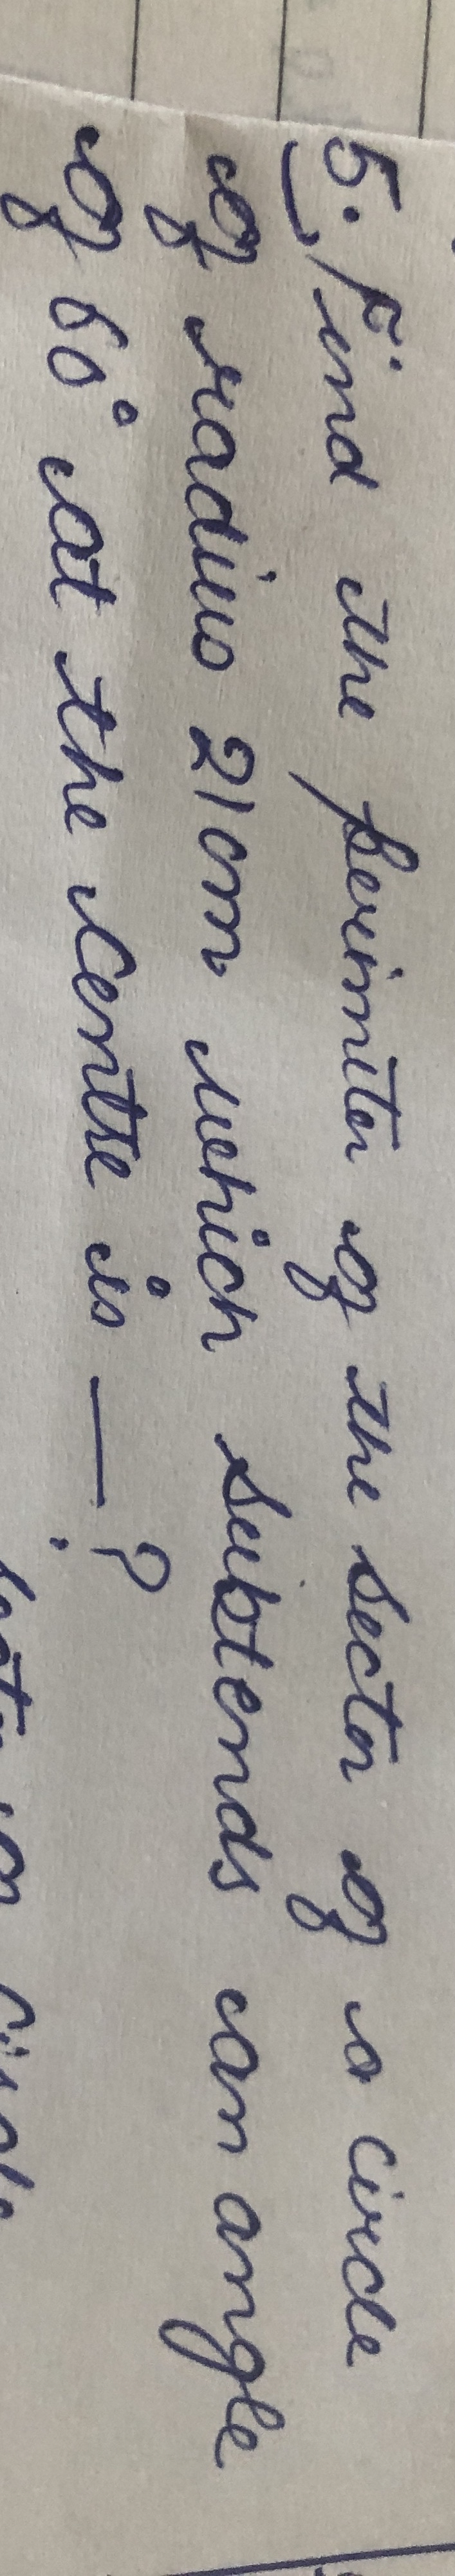 5. Find the perimiter of the sector of a circle
of radius 21cm which subtends an angle
of 60° at the centre is — ?